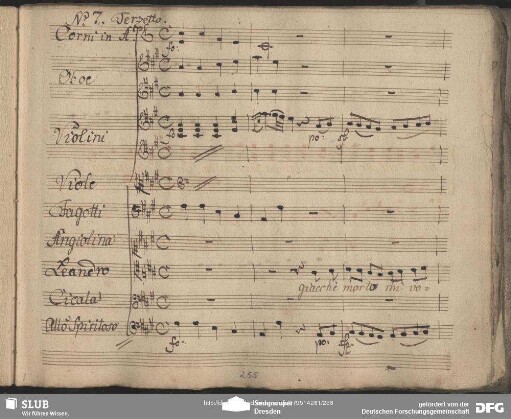 No. 7. Terzetto.
Corni in A
Oboe
Violini
Viole
Fagotti
Angiolina
Leandro
giacchè morto mi vo-
Cicala
Allo Spiritoso
fo:
fo:
po:
po:
255
SLUB
Wir führen Wissen.
Dresden
gefördert von der
Deutschen Forschungsgemeinschaft
DFG